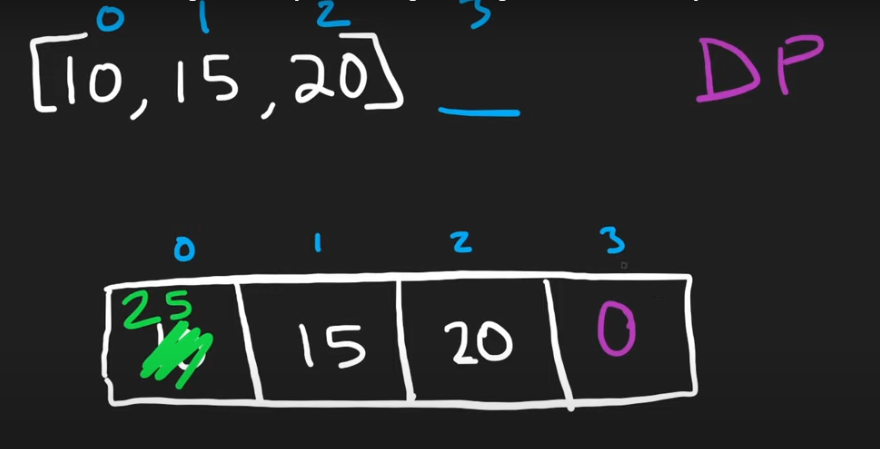 0 1 2 3
[10, 15, 20] __ DP
0 1 2 3
25 15 20 0